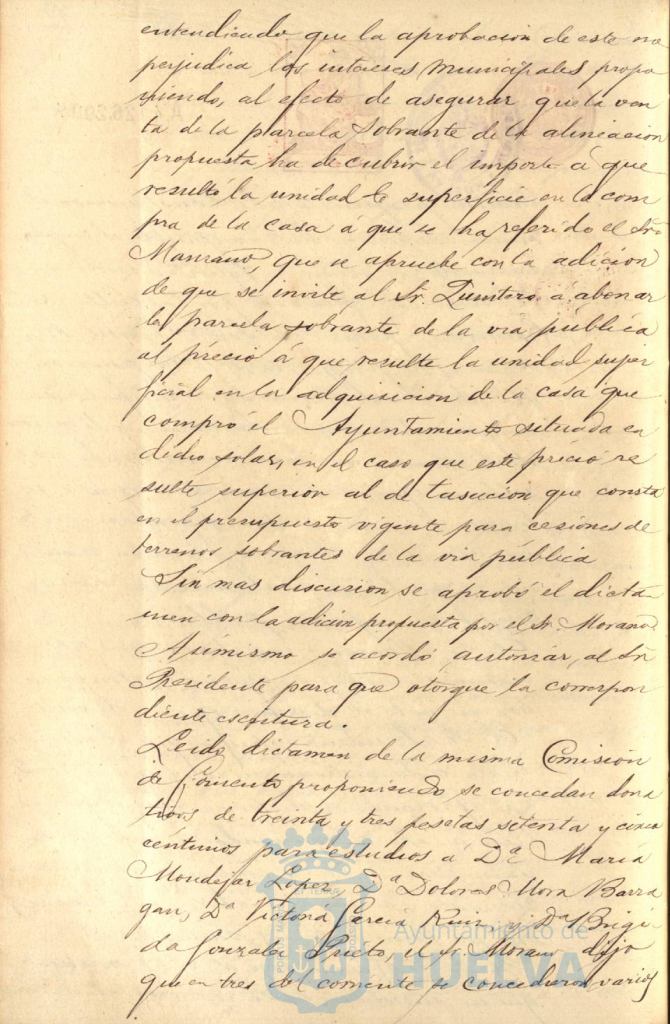 entendiendo que la aprobacion de este no
perjudica los intereses municipales propo
niendo, al efecto de asegurar que la ven
ta de la parcela sobrante de la alineacion
propuesta ha de cubrir el importe á que
resultó la unidad de superficie en la com
pra de la casa á que se ha referido el Sr.
Manzano, que se apruebe con la adicion
de que se invite al Sr. Quintero á abonar
la parcela sobrante de la via pública
al precio á que resulte la unidad super
ficial en la adquisicion de la casa que
compró el Ayuntamiento situada en
dicho solar, en el caso que este precio re
sulte superior al de tasacion que consta
en el presupuesto vigente para cesiones de
terrenos sobrantes de la via pública
Sin mas discusion se aprobó el dictá
men con la adicion propuesta por el Sr. Morano.
Asimismo se acordó autorizar al Sr.
Presidente para que otorgue la correspon
diente escritura.
Leido dictamen de la misma Comisión
de Fomento proponiendo se concedan dona
tivos de treinta y tres pesetas setenta y cinco
céntimos para estudios á Dª María
Mondejar Lopez, Dª Dolores Mora Barra
gan, Dª Victoria Garcia Ruiz y Dª Brigi
da Gonzalez Prieto, el Sr. Morano dijo
que en tres del corriente se concedieron varios
Ayuntamiento de
HUELVA